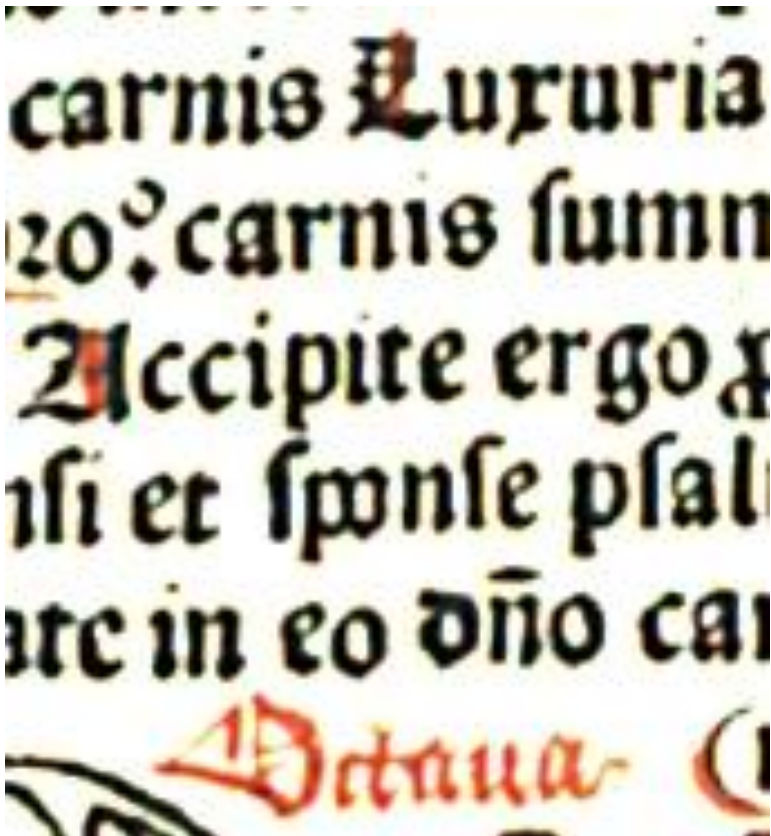 carnis Luxuria
ro: carnis ſumm
Accipite ergo
nſi et ſponſe pſal
ate in eo dn̄o car
Octaua